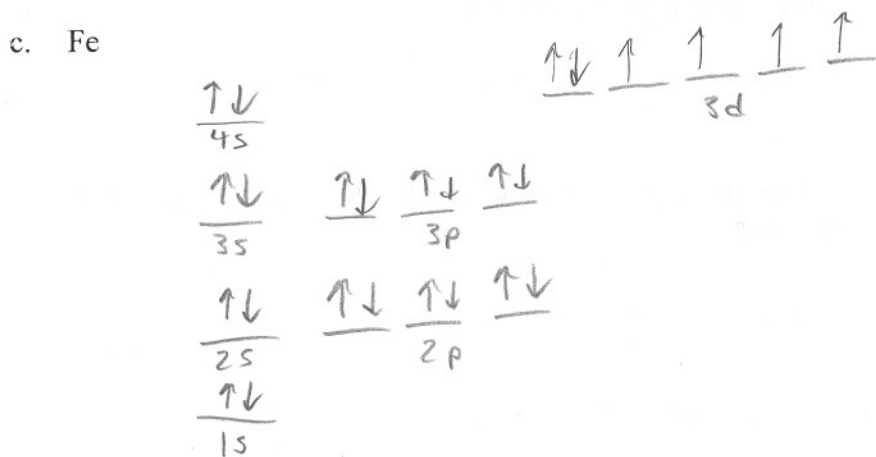 c. Fe
↑↓ ↑ ↑ ↑ ↑
3d
↑↓
4s
↑↓ ↑↓ ↑↓ ↑↓
3s 3p
↑↓ ↑↓ ↑↓ ↑↓
2s 2p
↑↓
1s